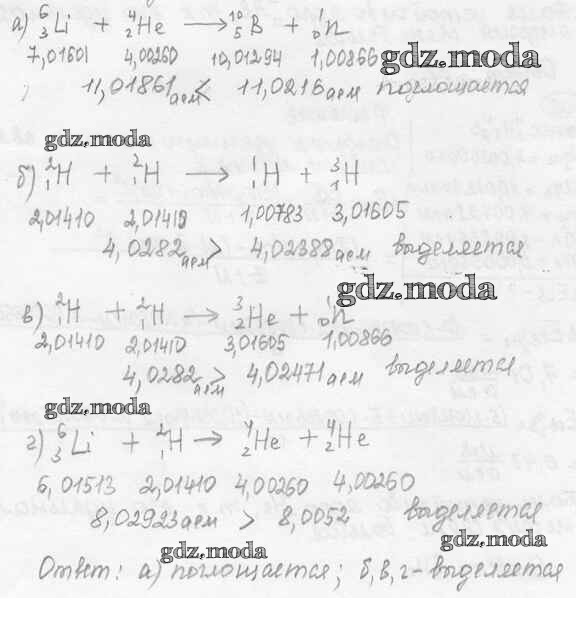 а) ⁶₃Li + ⁴₂He → ¹⁰₅B + ¹₀n
7,01601 4,00260 10,01294 1,00866 gdz.moda
11,01861 аем < 11,0216 аем поглощается
gdz.moda
б) ²₁H + ²₁H → ¹₁H + ³₁H
2,01410 2,01410 1,00783 3,01605
4,0282 аем > 4,02388 аем выделяется
gdz.moda
в) ²₁H + ²₁H → ³₂He + ¹₀n
2,01410 2,01410 3,01605 1,00866
4,0282 аем > 4,02471 аем выделяется
gdz.moda
г) ⁶₃Li + ²₁H → ⁴₂He + ⁴₂He
6,01513 2,01410 4,00260 4,00260
8,02923 аем > 8,0052 выделяется
gdz.moda gdz.moda
Ответ: а) поглощается; б, в, г - выделяется